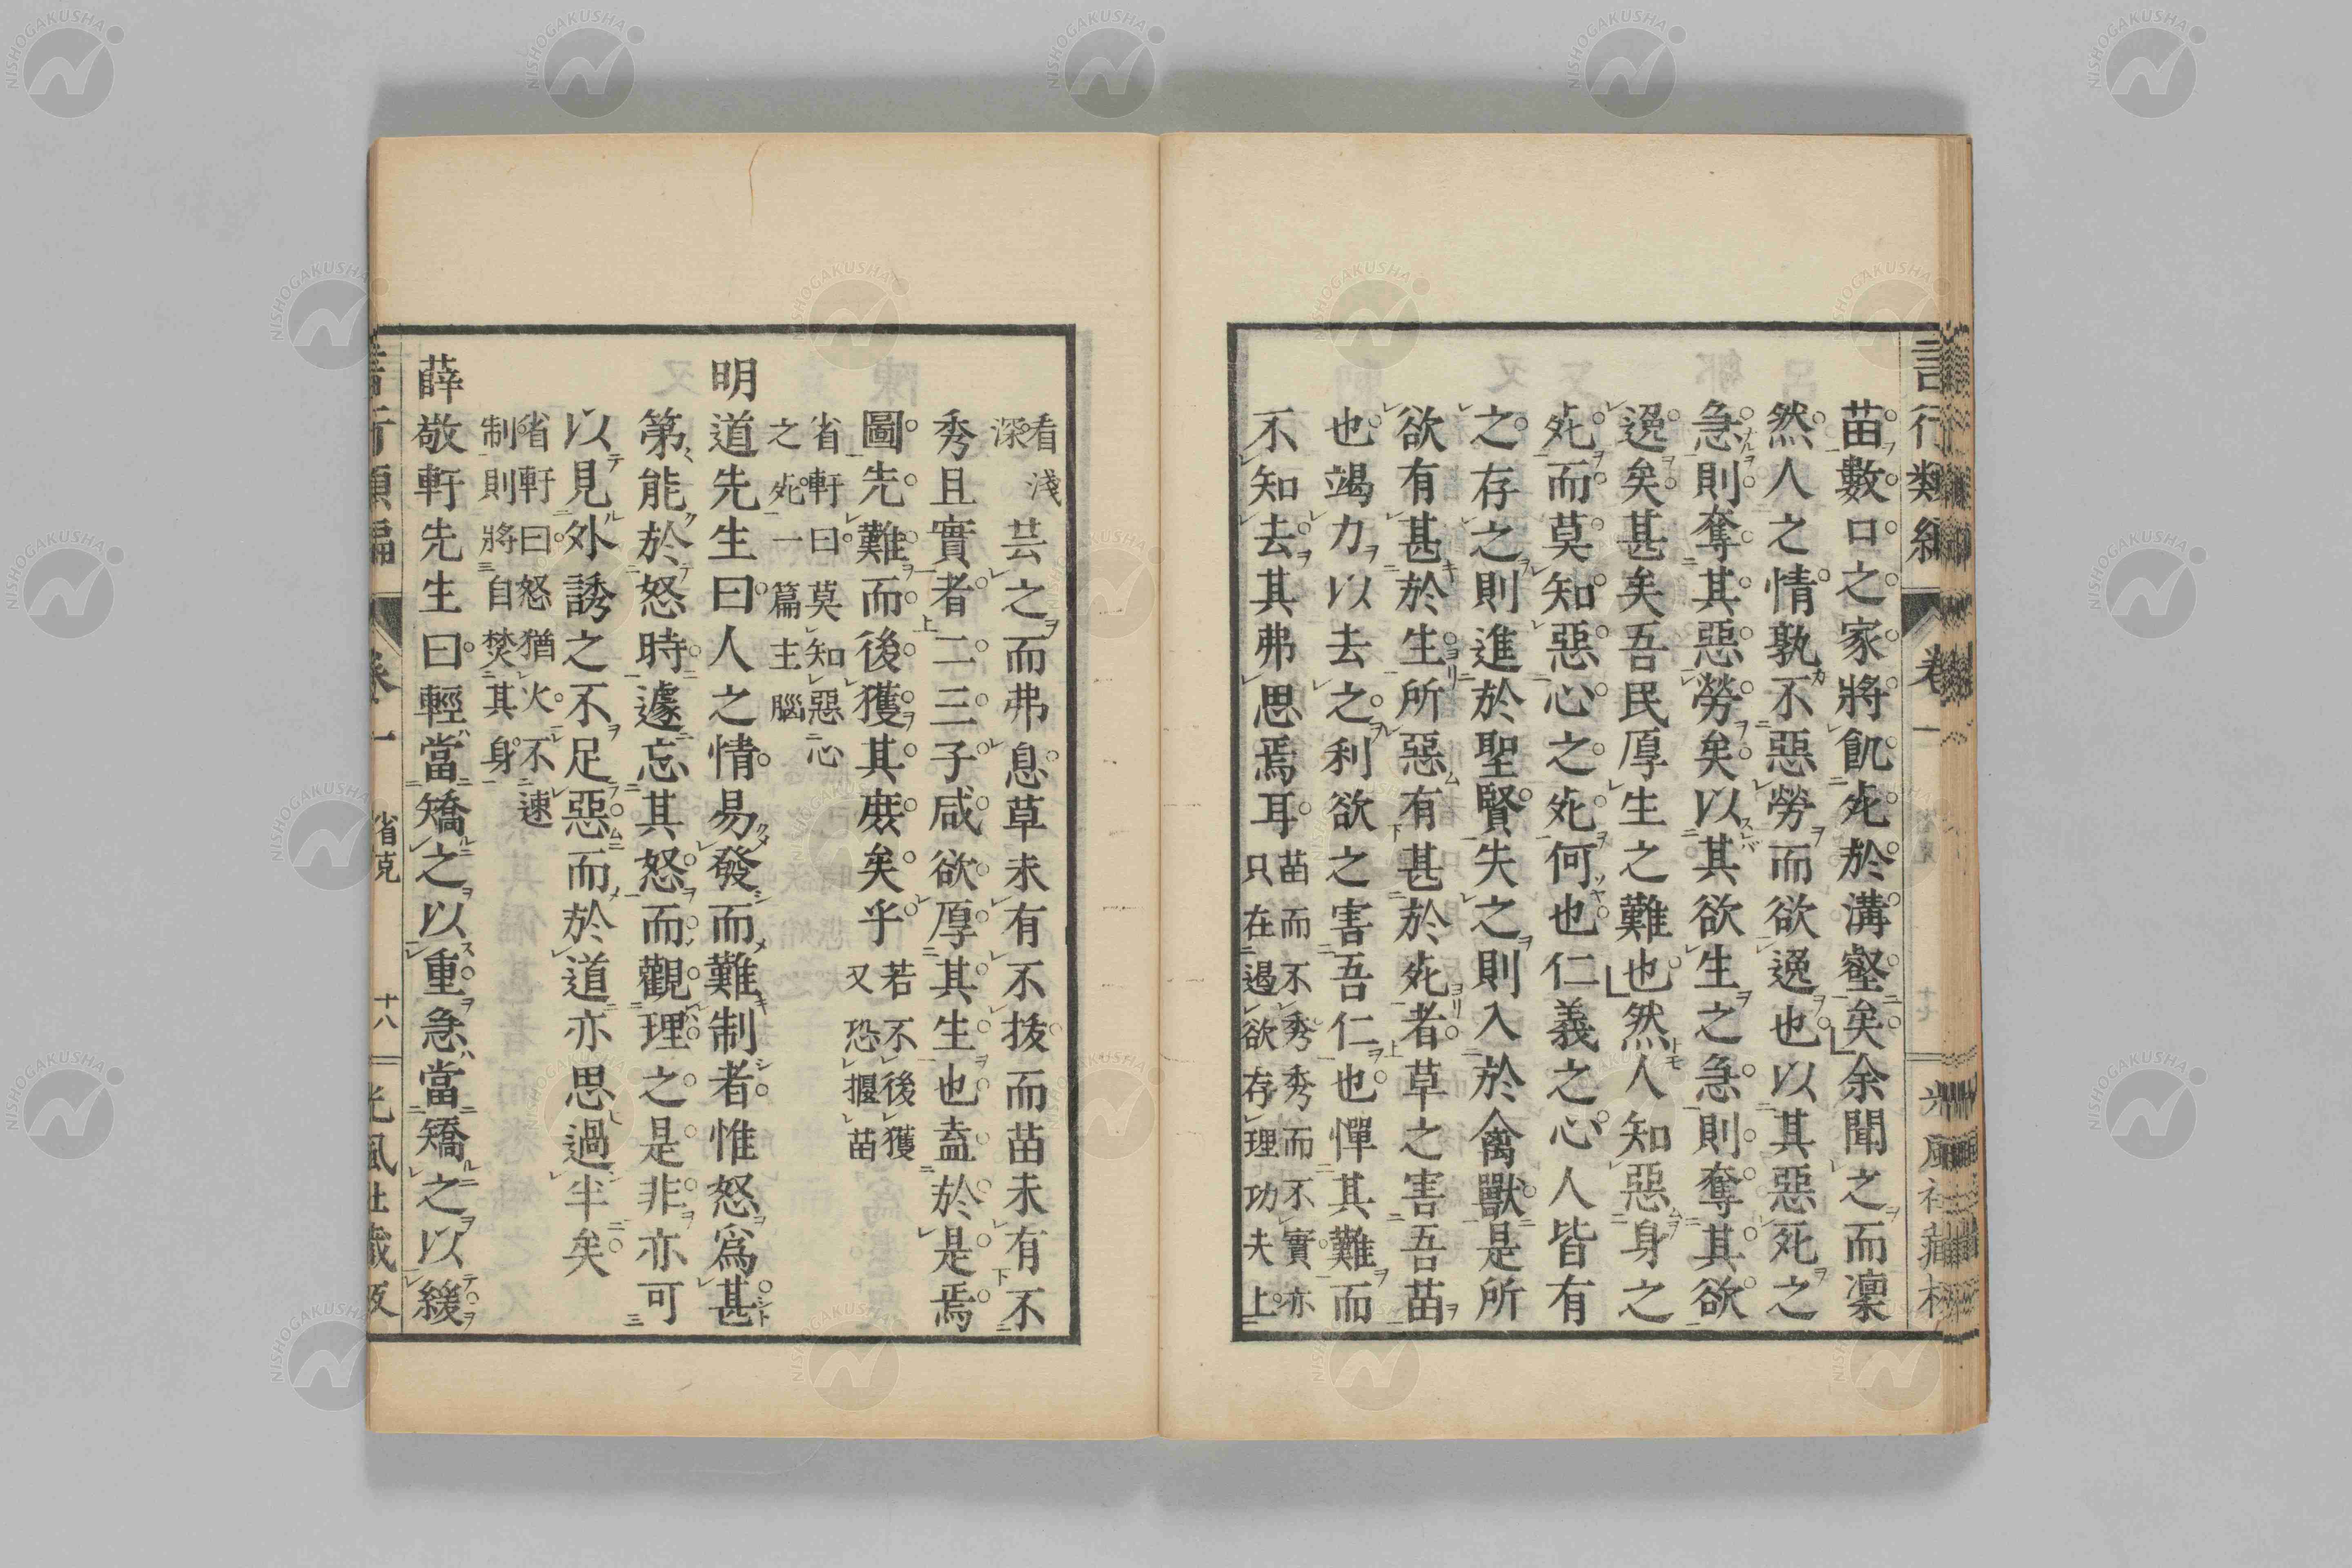 言行類編 卷一
苗數口之家將飢死於溝壑矣余聞之而凜
然人之情孰不惡勞而欲逸也以其惡死之
急則奪其惡勞矣以其欲生之急則奪其欲
逸矣甚矣吾民厚生之難也然人知惡身之
死而莫知惡心之死何也仁義之心人皆有
之存之則進於聖賢失之則入於禽獸是所
欲有甚於生所惡有甚於死者草之害吾苗
也竭力以去之利欲之害吾仁也憚其難而
不知去其弗思焉耳
苗而不秀秀而不實亦
只在遏欲存理功夫上
看淺
深
芸之而弗息草未有不拔而苗未有不
秀且實者二三子咸欲厚其生也盍於是焉
圖先難而後獲其庶矣乎
若不後獲
又恐揠苗
省軒曰莫知惡心
之死一篇主腦
明道先生曰人之情易發而難制者惟怒爲甚
第能於怒時遽忘其怒而觀理之是非亦可
以見外誘之不足惡而於道亦思過半矣
省軒曰怒猶火不速
制則將自焚其身
薛敬軒先生曰輕當矯之以重急當矯之以緩
言行類編 卷一 省克 十八 光風社藏版
NISHOGAKUSHA